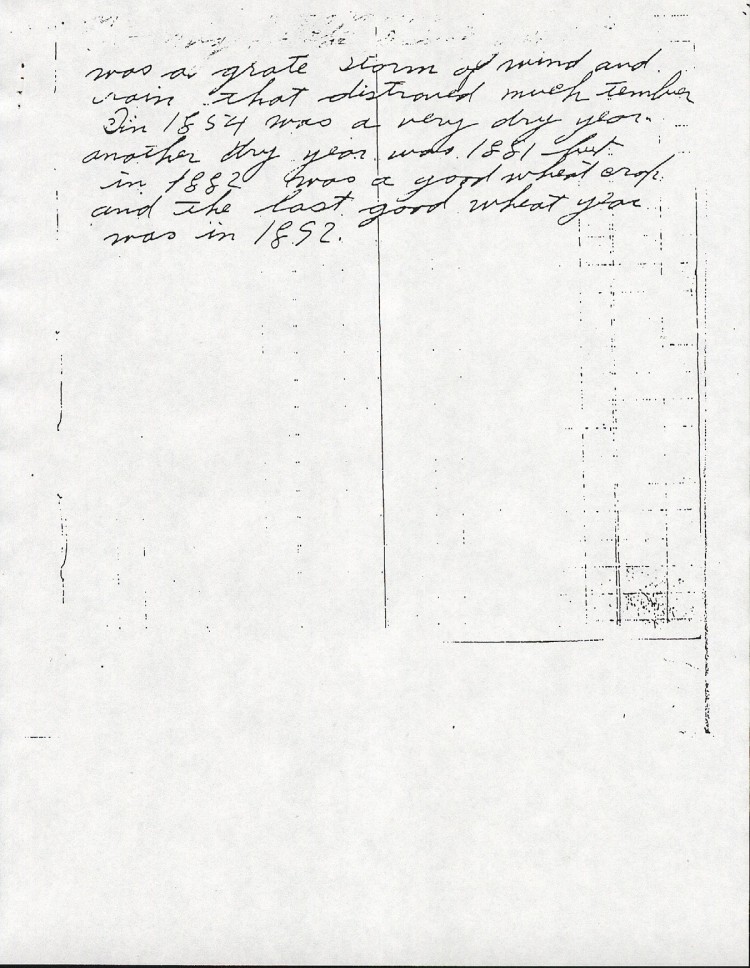 was a grate storm of wind and
rain that distraved much tember
In 1854 was a very dry year.
another dry year was 1881 but
in 1882 was a good wheat crop
and the last good wheat year
was in 1892.